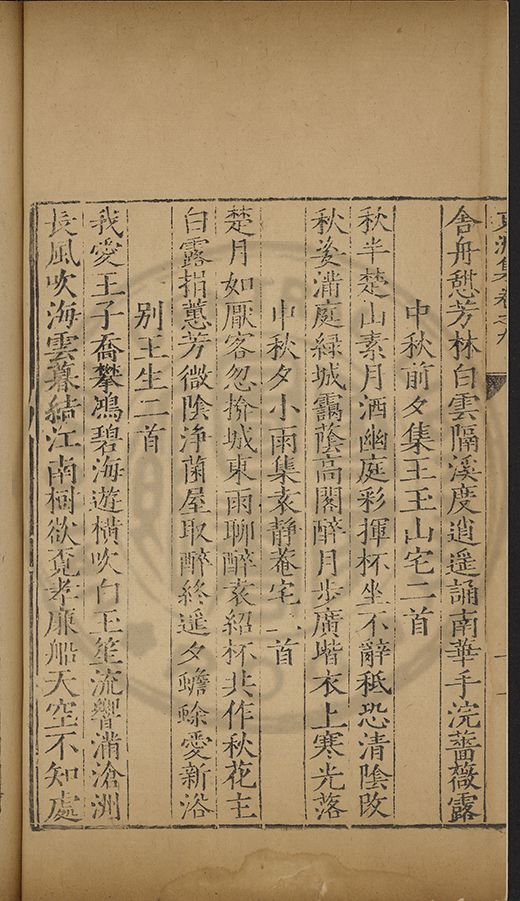 集卷之九
舍舟憩芳林白雲隔溪度逍遥誦南華手浣薔薇露
中秋前夕集王玉山宅二首
秋半楚山素月洒幽庭彩揮杯坐不辭秪恐清陰改
秋姿滿庭緑城靄蔭高閣醉月步廣堦衣上寒光落
中秋夕小雨集袁静菴宅二首
楚月如厭客忽掩城東雨聊醉袁紹杯共作秋花主
白露捐蕙芳微陰浄菌屋取醉終遥夕蟾蜍愛新浴
别王生二首
我愛王子喬攀鴻碧海遊横吹白玉笙流響滿滄洲
長風吹海雲暮結江南樹欲覓孝廉船天空不知處